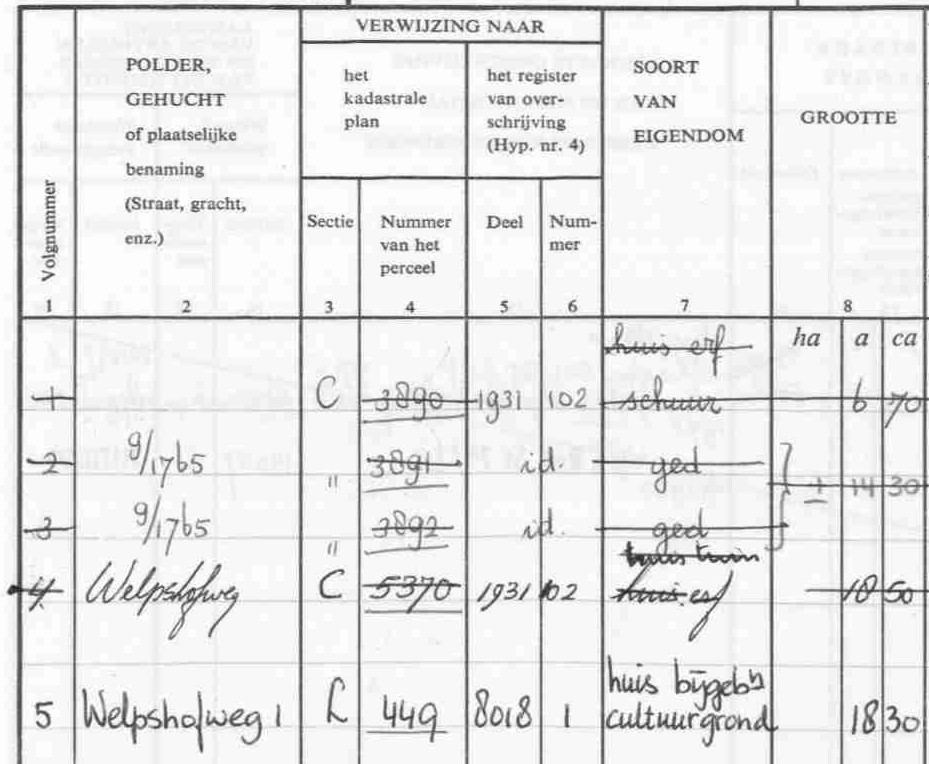 VERWIJZING NAAR
POLDER,
GEHUCHT
of plaatselijke
benaming
(Straat, gracht,
enz.)
het
kadastrale
plan
het register
van over-
schrijving
(Hyp. nr. 4)
SOORT
VAN
EIGENDOM
GROOTTE
Volgnummer
Sectie
Nummer
van het
perceel
Deel
Num-
mer
1 2 3 4 5 6 7 8
huis erf ha a ca
1 C 3890 1931 102 schuur 6 70
2 9/1765 " 3891 id. ged
1 14 30
3 9/1765 " 3892 id. ged
huis tuin
4 Welpshofweg C 5370 1931 102 huis erf 18 50
huis bijgebn
5 Welpshofweg 1 L 449 8018 1 cultuurgrond 18 30